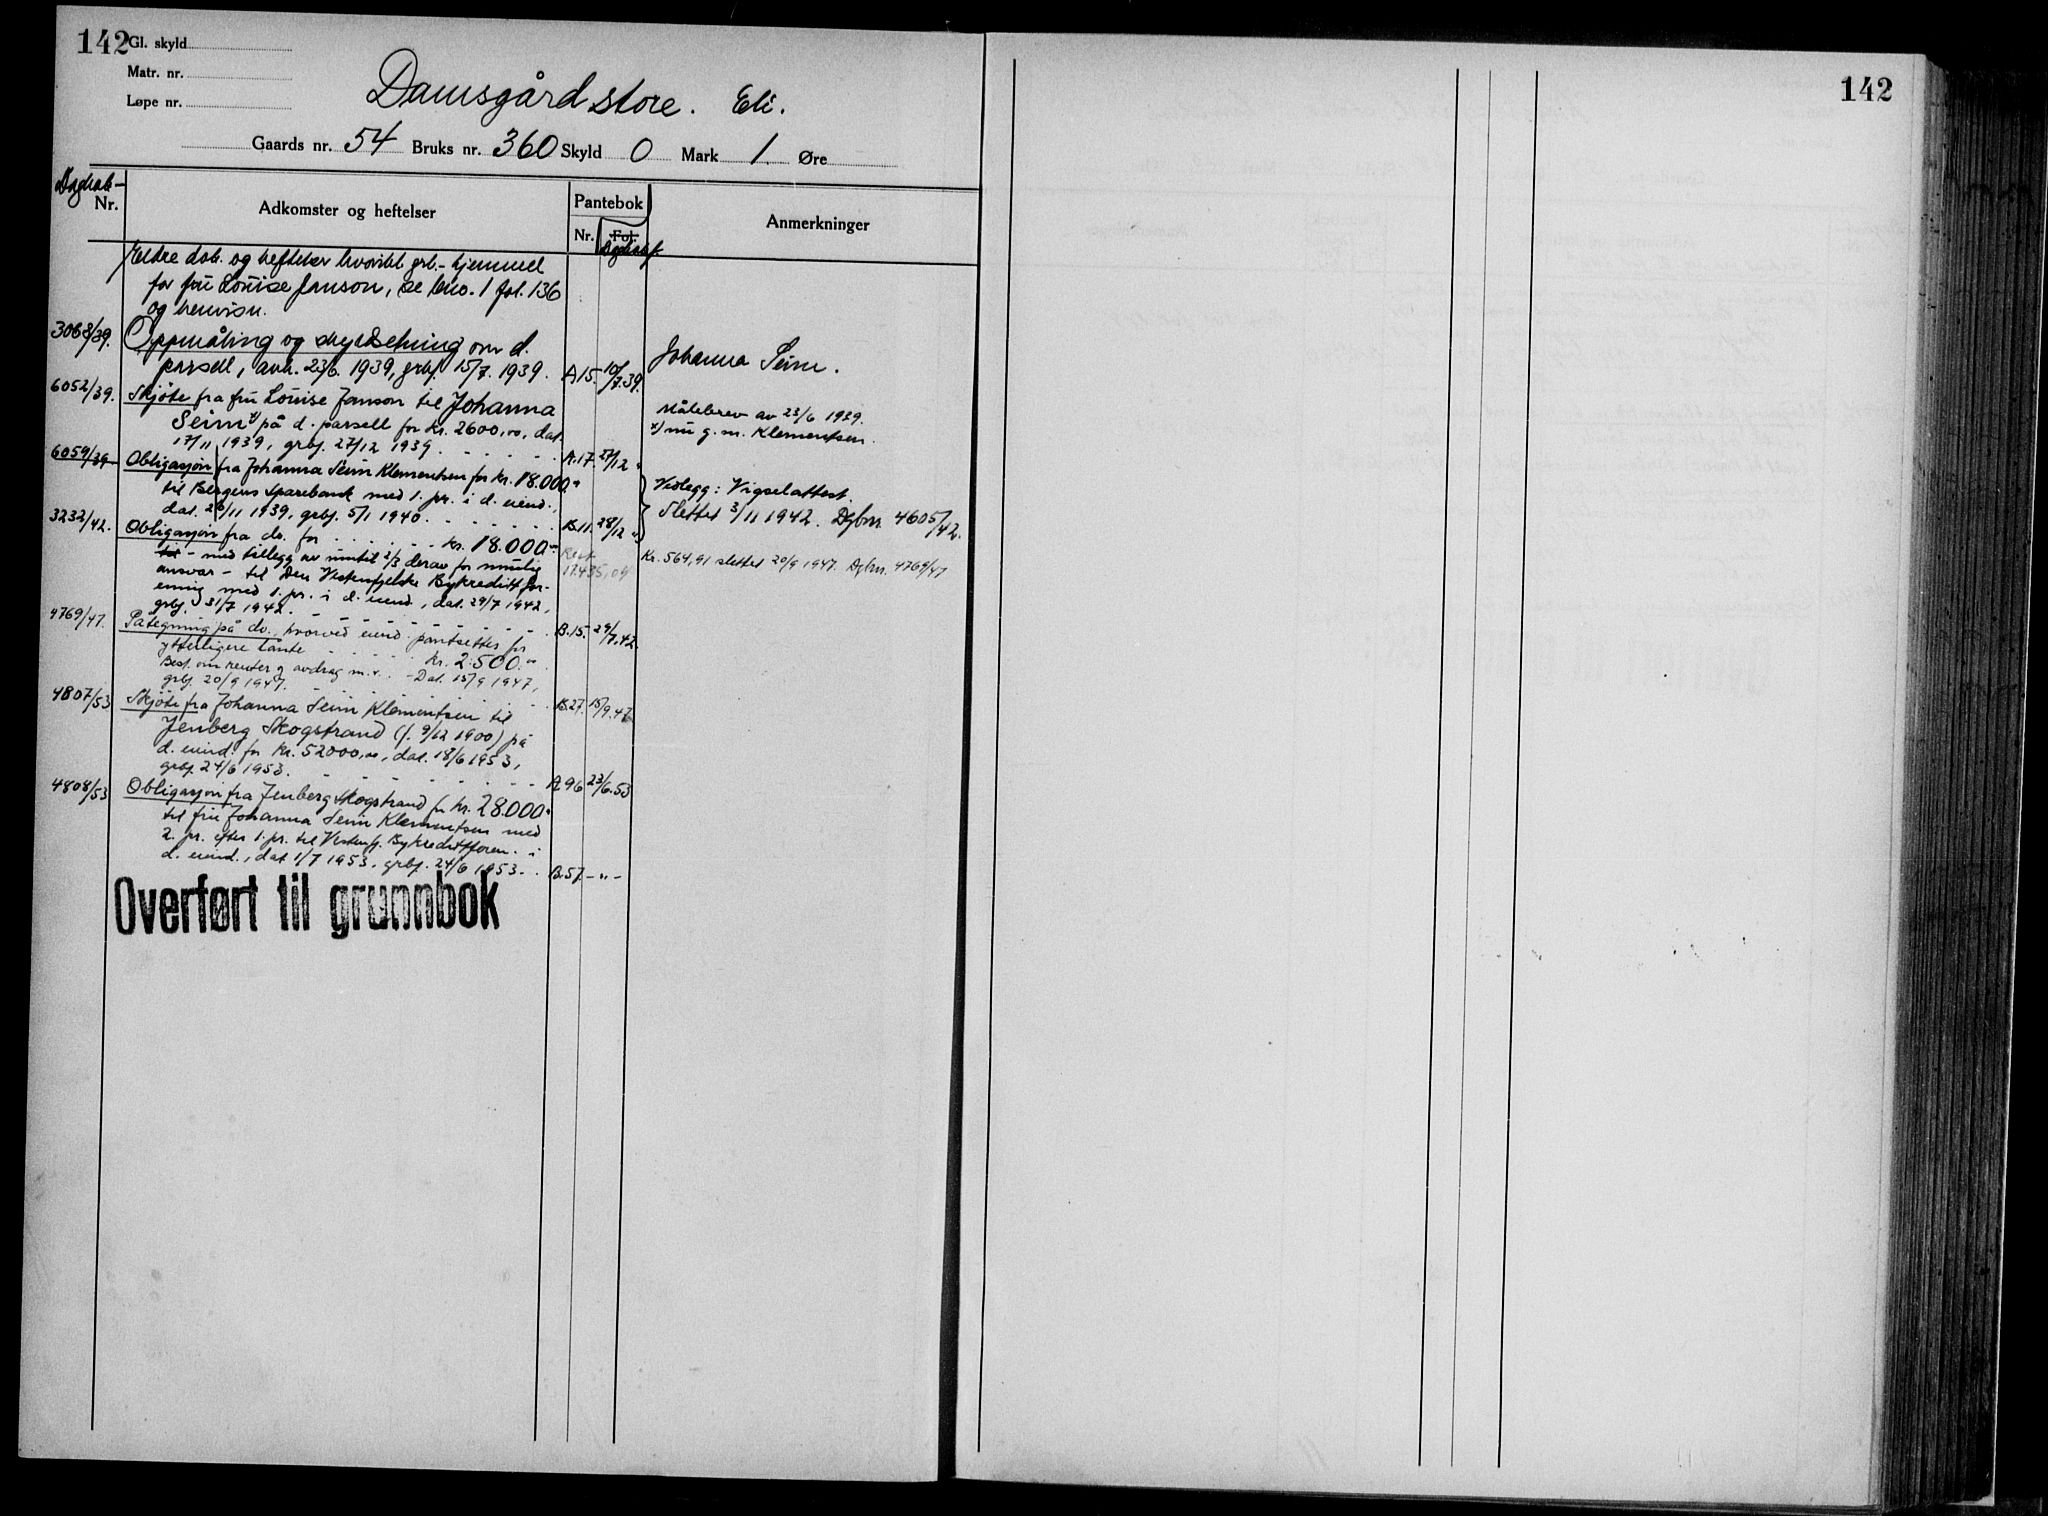 142 Gl. skyld
Matr. nr.
Løpe nr.
Damsgård store. Eli.
Gaards nr. 54 Bruks nr. 360 Skyld 0 Mark 1. Øre
Dagbok-
Nr.
Adkomster og heftelser
Pantebok
Nr. Fol.
Dagbokf.
Anmerkninger
Eldre dok. og heftelser hvoribl. grb.-hjemmel
for fru Louise Janson, se bno. 1 fol. 136
og henvisn.
3068/39. Oppmåling og skyldsetning over d.
parsell, avh. 23/6. 1939, grbf. 15/7. 1939. A 15. 10/7.39. Johanna Seim.
6052/39. Skjøte fra fru Louise Janson til Johanna
Seim x) på d. parsell for kr. 2600,00, dat. Målebrev av 23/6 1939.
17/11 1939, grbf. 27/12 1939. A.17. 27/12 " x) nu g. m. Klementsen.
6059/39 Obligasjon fra Johanna Seim Klementsen for kr. 18.000,"
til Bergens Sparebank med 1. pr. i d. eiend., Vedlegg: Vigselattest.
dat. 28/11 1939, grbf. 5/1 1940. B.11. 28/12 " Slettet 3/11 1942. Dgbnr. 4605/42.
3232/42. Obligasjon fra do. for kr. 18.000.-
til - med tillegg av inntil 2/3 derav for mulig Rest 17.435,09 Kr. 564,91 slettet 20/9 1947. Dgbnr. 4769/47
ansvar - til Den Vestenfjelske Bykreditfor-
ening med 1. pr. i d. eiend., dat. 29/7 1942,
grbf. 31/7 1942. B.15. 29/7.42.
4769/47. Påtegning på do., hvorved eiend. pantsettes for
ytterligere lånte kr. 2.500."
Best. om renter og avdrag m.v. - Dat. 15/9 1947,
grbf. 20/9 1947. B.27. 15/9.47
4807/53 Skjøte fra Johanna Seim Klementsen til
Jenberg Skogstrand (f. 9/12 1900) på
d. eiend. for kr. 52000,00, dat. 18/6 1953,
grbf. 24/6 1953. A 96 23/6.53
4808/53 Obligasjon fra Jenberg Skogstrand for kr. 28.000"
til fru Johanna Seim Klementsen med
2. pr. efter 1. pr. til Vestenfj. Bykredittforen. i
d. eiend., dat 1/7 1953, grbf. 24/6 1953. B.57. - " -
Overført til grunnbok
142